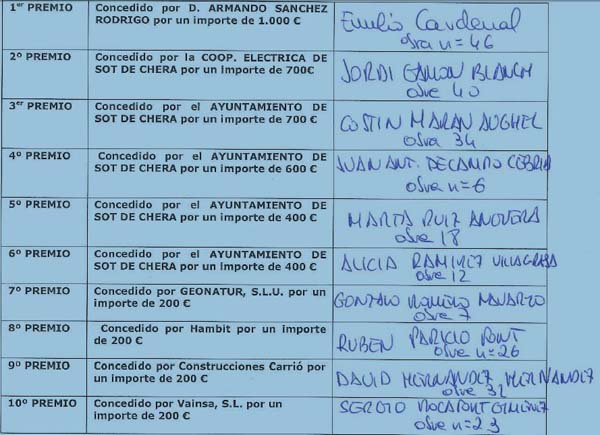 1er PREMIO
Concedido por D. ARMANDO SANCHEZ
RODRIGO por un importe de 1.000 €
Emilio Cardenal
obra n= 46
2º PREMIO
Concedido por la COOP. ELECTRICA DE
SOT DE CHERA por un importe de 700€
JORDI GAMON BLANCH
obra 40
3er PREMIO
Concedido por el AYUNTAMIENTO DE
SOT DE CHERA por un importe de 700 €
COSTIN MARAN AUGHEL
obra 34
4º PREMIO
Concedido por el AYUNTAMIENTO DE
SOT DE CHERA por un importe de 600 €
JUAN ANT. DECAMPO CEBRIA
obra n=6
5º PREMIO
Concedido por el AYUNTAMIENTO DE
SOT DE CHERA por un importe de 400 €
MARTA RUIZ ANGUERA
obra 18
6º PREMIO
Concedido por el AYUNTAMIENTO DE
SOT DE CHERA por un importe de 400 €
ALICIA RAMIREZ VILLAGRASA
obra 12
7º PREMIO
Concedido por GEONATUR, S.L.U. por un
importe de 200 €
GONZALO ROMERO NAVARRO
obra 7
8º PREMIO
Concedido por Hambit por un importe
de 200 €
RUBEN PARICIO FONT
obra n=26
9º PREMIO
Concedido por Construcciones Carrió por
un importe de 200 €
DAVID HERNANDEZ HERNANDEZ
obra 32
10º PREMIO
Concedido por Vainsa, S.L. por un
importe de 200 €
SERGIO ROCAFORT GIMENEZ
obra n=23